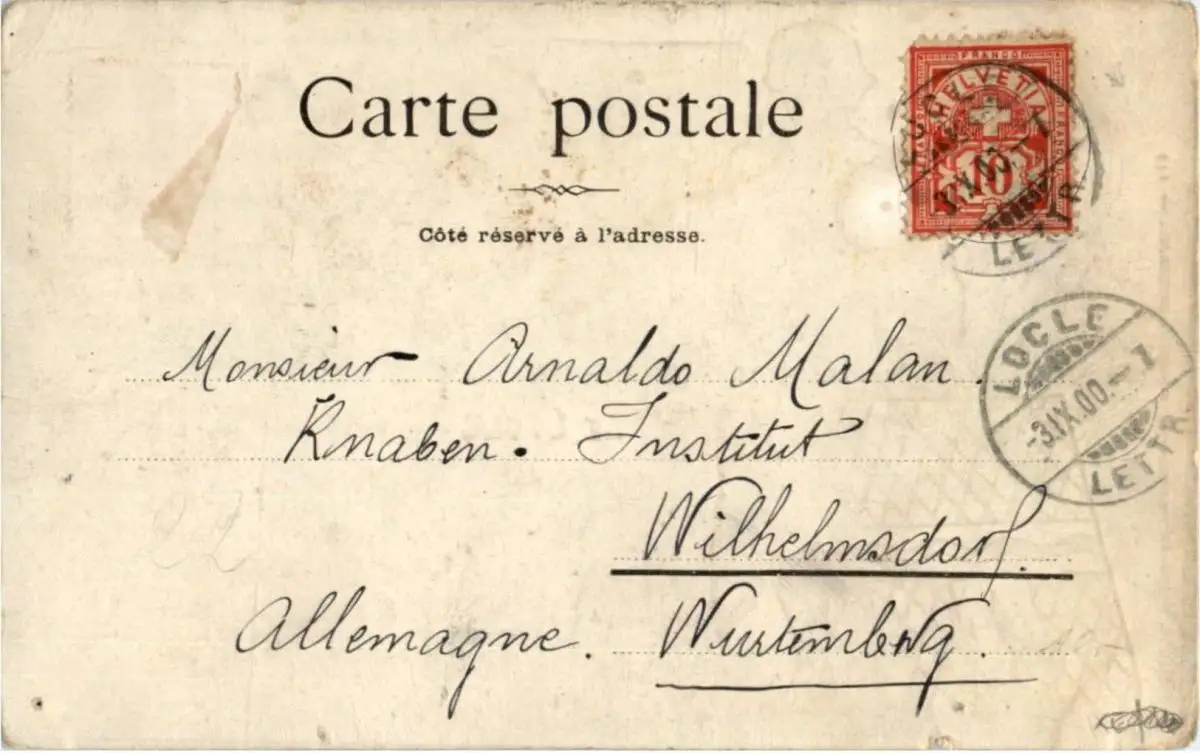 Carte postale
FRANCO
HELVETIA
10
LETTR
Côté réservé à l'adresse.
LOCLE
-3.IX.00.-7
LETTR.
Monsieur Arnaldo Malan.
Knaben. Institut
Wilhelmsdorf.
Allemagne. Wurtemberg.